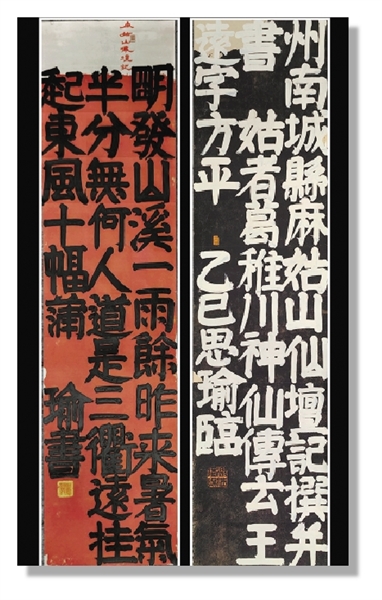 州南城縣麻姑山仙壇記撰并
書 姑者葛稚川神仙傳云王
遠字方平 乙巳思瑜臨
明發山溪一雨餘昨来暑氣
半分無何人道是三衢遠挂
起東風十幅蒲 瑜書